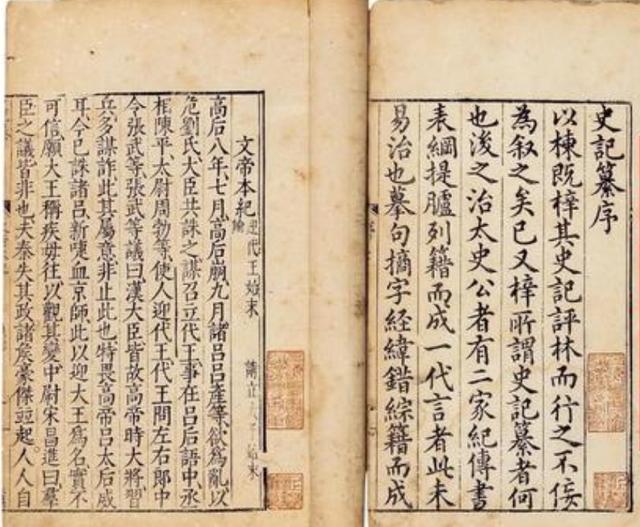 史記纂序
以棟既梓其史記評林而行之不佞
為叙之矣已又梓所謂史記纂者何
也浚之治太史公者有二家紀傳書
表綱提臚列籍而成一代言者此未
易治也摹句摘字経緯錯綜籍而成
文帝本紀 代王始末
高后八年七月高后崩九月諸呂呂產等欲為亂以
危劉氏大臣共誅之謀召立代王事在呂后語中丞
相陳平太尉周勃等使人迎代王代王問左右郎中
令張武等張武等議曰漢大臣皆故高帝時大將習
兵多謀詐此其屬意非止此也特畏高帝呂太后威
耳今已誅諸呂新啑血京師此以迎大王為名實不
可信願大王稱疾毋往以觀其變中尉宋昌進曰羣
臣之議皆非也夫秦失其政諸矦豪傑竝起人人自